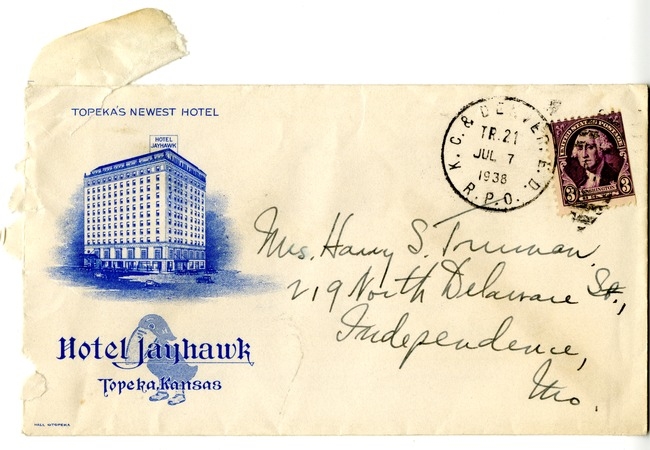 TOPEKA'S NEWEST HOTEL
HOTEL
JAYHAWK
K.C. & DENVER. E.D.
TR.21
JUL 7
1938
R.P.O.
UNITED STATES POSTAGE
3 WASHINGTON 3
Mrs. Harry S. Truman
219 North Delaware St.,
Independence,
Mo.
Hotel Jayhawk
Topeka, Kansas
HALL TOPEKA